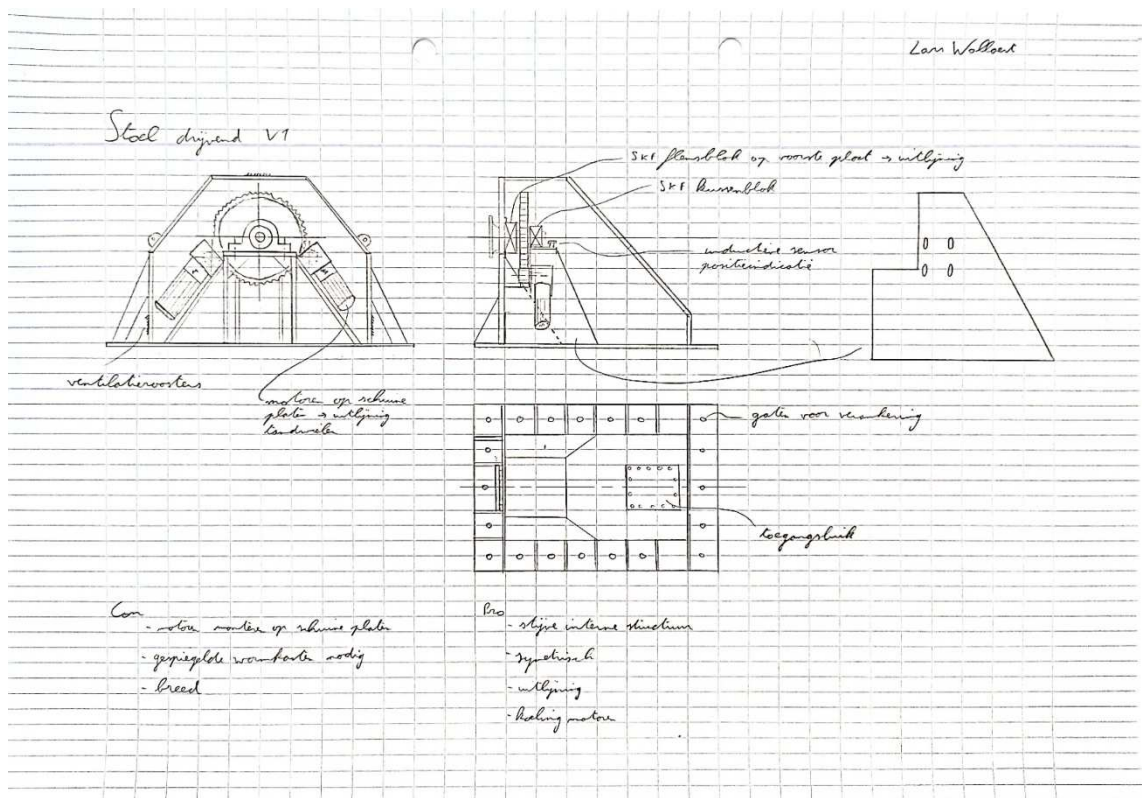 Stoel drijvend V1
SKF flensblok op voorste plaat → uitlijning
SKF kussenblok
inductieve sensor
positieindicatie
ventilatieroosters
motoren op schuine
platen → uitlijning
tandwielen
gaten voor verankering
toegangsluik
Con
- motoren monteren op schuine platen
- gespiegelde wormkasten nodig
- breed
Pro
- stijve interne structuur
- symetrisch
- uitlijning
- koeling motoren